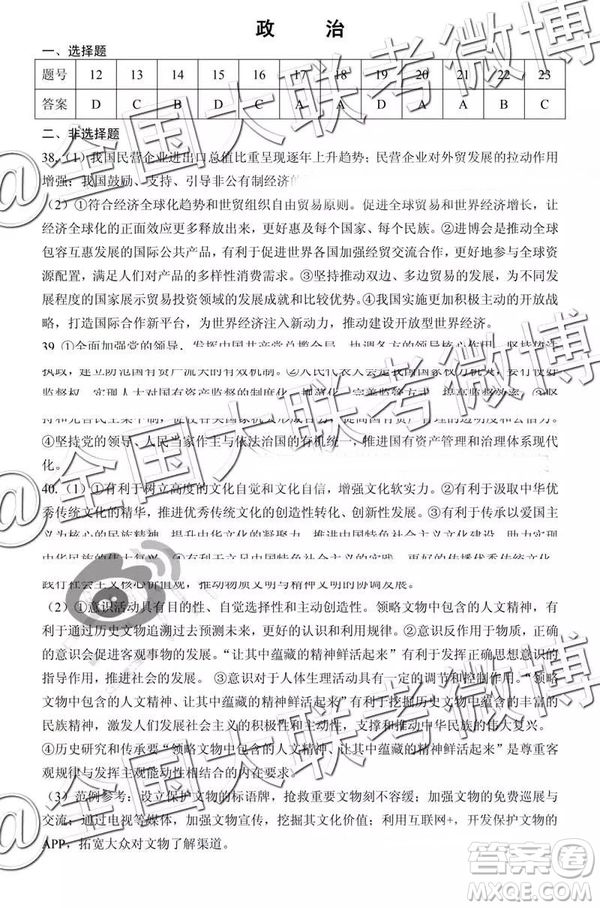 政 治
一、选择题
题号 12 13 14 15 16 17 18 19 20 21 22 23
答案 D C B D C A A D A A B C
二、非选择题
38.（1）我国民营企业进出口总值比重呈现逐年上升趋势；民营企业对外贸发展的拉动作用
增强；我国鼓励、支持、引导非公有制经济的
（2）①符合经济全球化趋势和世贸组织自由贸易原则。促进全球贸易和世界经济增长，让
经济全球化的正面效应更多释放出来，更好惠及每个国家、每个民族。②进博会是推动全球
包容互惠发展的国际公共产品，有利于促进世界各国加强经贸交流合作，更好地参与全球资
源配置，满足人们对产品的多样性消费需求。③坚持推动双边、多边贸易发展，为不同发
展程度的国家展示贸易投资领域的发展成就和比较优势。④我国实施更加积极主动的开放战
略，打造国际合作新平台，为世界经济注入新动力，推动建设开放型世界经济。
39.①全面加强党的领导，发挥中国共产党总揽全局、协调各方的领导核心作用，坚持依法
执政，建立防范国有资产流失的有效机制。②人民代表大会是我国国家权力机关，要行使好
监督权，实现人大对国有资产监督的制度化、规范化，完善监督方式，提高监督实效。③坚
持和完善民主集中制，促使各类国家机关形成合力，提升国有资产管理的透明度和公信力。
④坚持党的领导、人民当家作主与依法治国的有机统一，推进国有资产管理和治理体系现代
化。
40.（1）①有利于树立高度的文化自觉和文化自信，增强文化软实力。②有利于汲取中华优
秀传统文化的精华，推进优秀传统文化的创造性转化、创新性发展。③有利于传承以爱国主
义为核心的民族精神，提升中华文化的凝聚力，推进中国特色社会主义文化建设，助力实现
中华民族的伟大复兴。④有利于立足中国特色社会主义的实践，更好的传播优秀传统文化，
践行社会主义核心价值观，推动物质文明与精神文明的协调发展。
（2）①意识活动具有目的性、自觉选择性和主动创造性。领略文物中包含的人文精神，有
利于通过历史文物追溯过去预测未来，更好的认识和利用规律。②意识反作用于物质，正确
的意识会促进客观事物的发展。“让其中蕴藏的精神鲜活起来”有利于发挥正确思想意识的
指导作用，推进社会的发展。 ③意识对于人体生理活动具有一定的调节和控制作用。“领略
文物中包含的人文精神、让其中蕴藏的精神鲜活起来”有利于挖掘文物中蕴藏的丰富的
民族精神，激发人们发展社会的积极性和主动性，支撑和推动中华民族的伟大复兴。
④历史研究和传承要“领略文物中包含的人文精神、让其中蕴藏的精神鲜活起来”是尊重客
观规律与发挥主观能动性相结合的内在要求。
（3）范例参考：设立保护文物的标语牌，抢救重要文物刻不容缓；加强文物的免费参展与
交流；通过电视等媒体，加强文物宣传，挖掘其文化价值；利用互联网+，开发保护文物的
APP，拓宽大众对文物了解渠道。
@全国大联考微博
@全国大联考微博
@全国大联考微博
答案圈
MXQE.COM